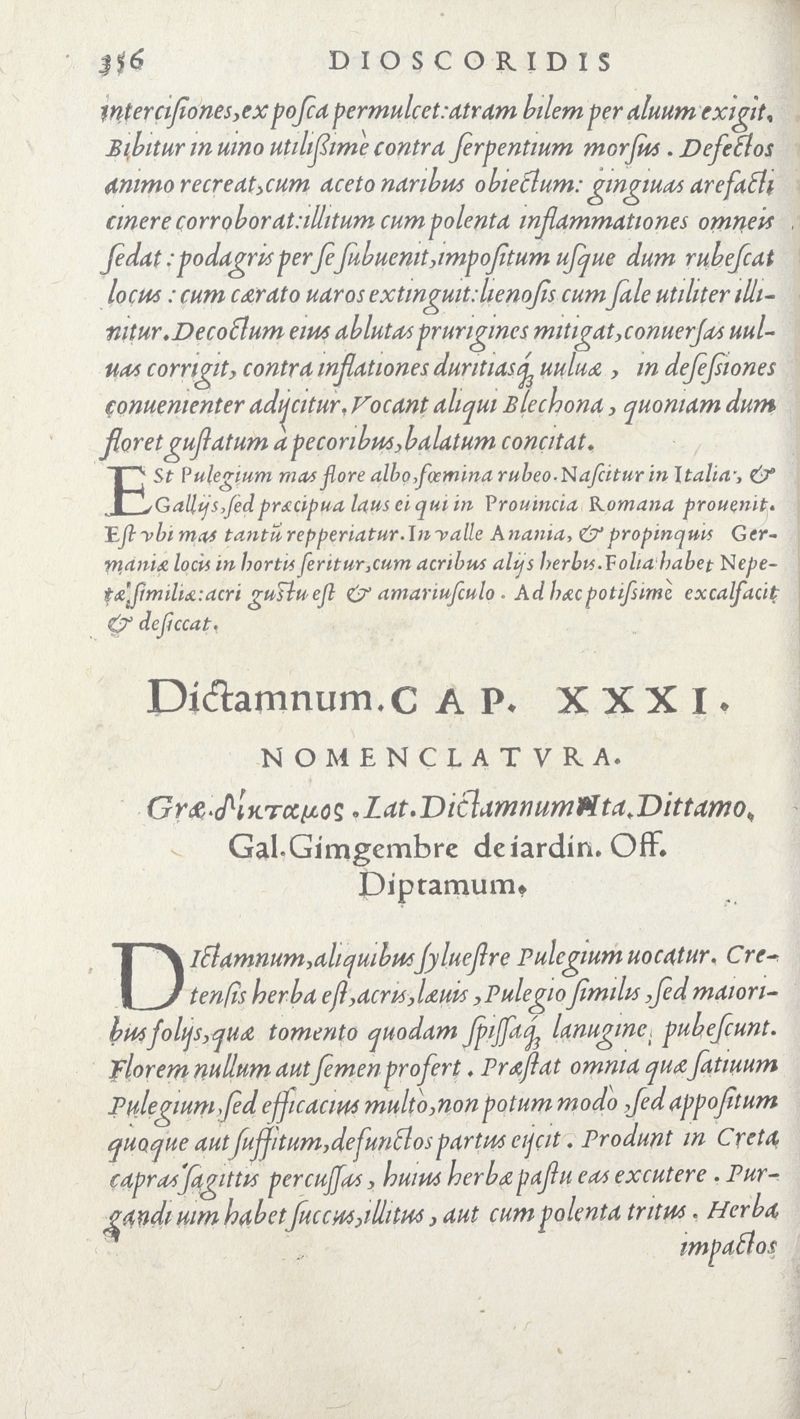 356 DIOSCORIDIS
interciſiones,ex poſca permulcet:atram bilem per aluum exigit.
Bibitur in uino utilißime contra ſerpentium morſus . Defectos
animo recreat,cum aceto naribus obiectum: gingiuas arefacti
cinere corroborat:illitum cum polenta inflammationes omneis
ſedat : podagris per ſe ſubuenit,impoſitum uſque dum rubeſcat
locus : cum cærato uaros extinguit:lienoſis cum ſale utiliter illi-
nitur.Decoctum eius ablutas prurigines mitigat,conuerſas uul-
uas corrigit, contra inflationes duritiasq́ꝫ uuluæ , in deſeſsiones
conuenienter adijcitur.Vocant aliqui Blechona , quoniam dum
floret guſtatum à pecoribus,balatum concitat.
ESt Pulegium mas flore albo,fœmina rubeo.Naſcitur in Italia, &
Gallijs,ſed præcipua laus ei qui in Prouincia Romana prouenit.
Eſt vbi mas tantū repperiatur.In valle Anania, & propinquis Ger-
maniæ locis in hortis ſeritur,cum acribus alijs herbis.Folia habet Nepe-
tæ ſimilia:acri guſtu eſt & amariuſculo . Ad hæc potiſsimè excalfacit
& deſiccat.
Dictamnum.CAP. XXXI.
NOMENCLATVRA.
Græ.δίκταμος .Lat.Dictamnum Ita.Dittamo.
Gal.Gimgembre de iardin. Off.
Diptamum.
DIctamnum,aliquibus ſylueſtre Pulegium uocatur. Cre-
tenſis herba eſt,acris,læuis ,Pulegio ſimilis ,ſed maiori-
bus folijs,quæ tomento quodam ſpiſſaq́ꝫ lanugine pubeſcunt.
Florem nullum aut ſemen profert . Præſtat omnia quæ ſatiuum
Pulegium,ſed efficacius multò,non potum modò ,ſed appoſitum
quoque aut ſuffitum,defunctos partus eijcit . Produnt in Creta
capras ſagittis percuſſas , huius herbæ paſtu eas excutere . Pur-
gandi uim habet ſuccus,illitus , aut cum polenta tritus . Herba
impactos